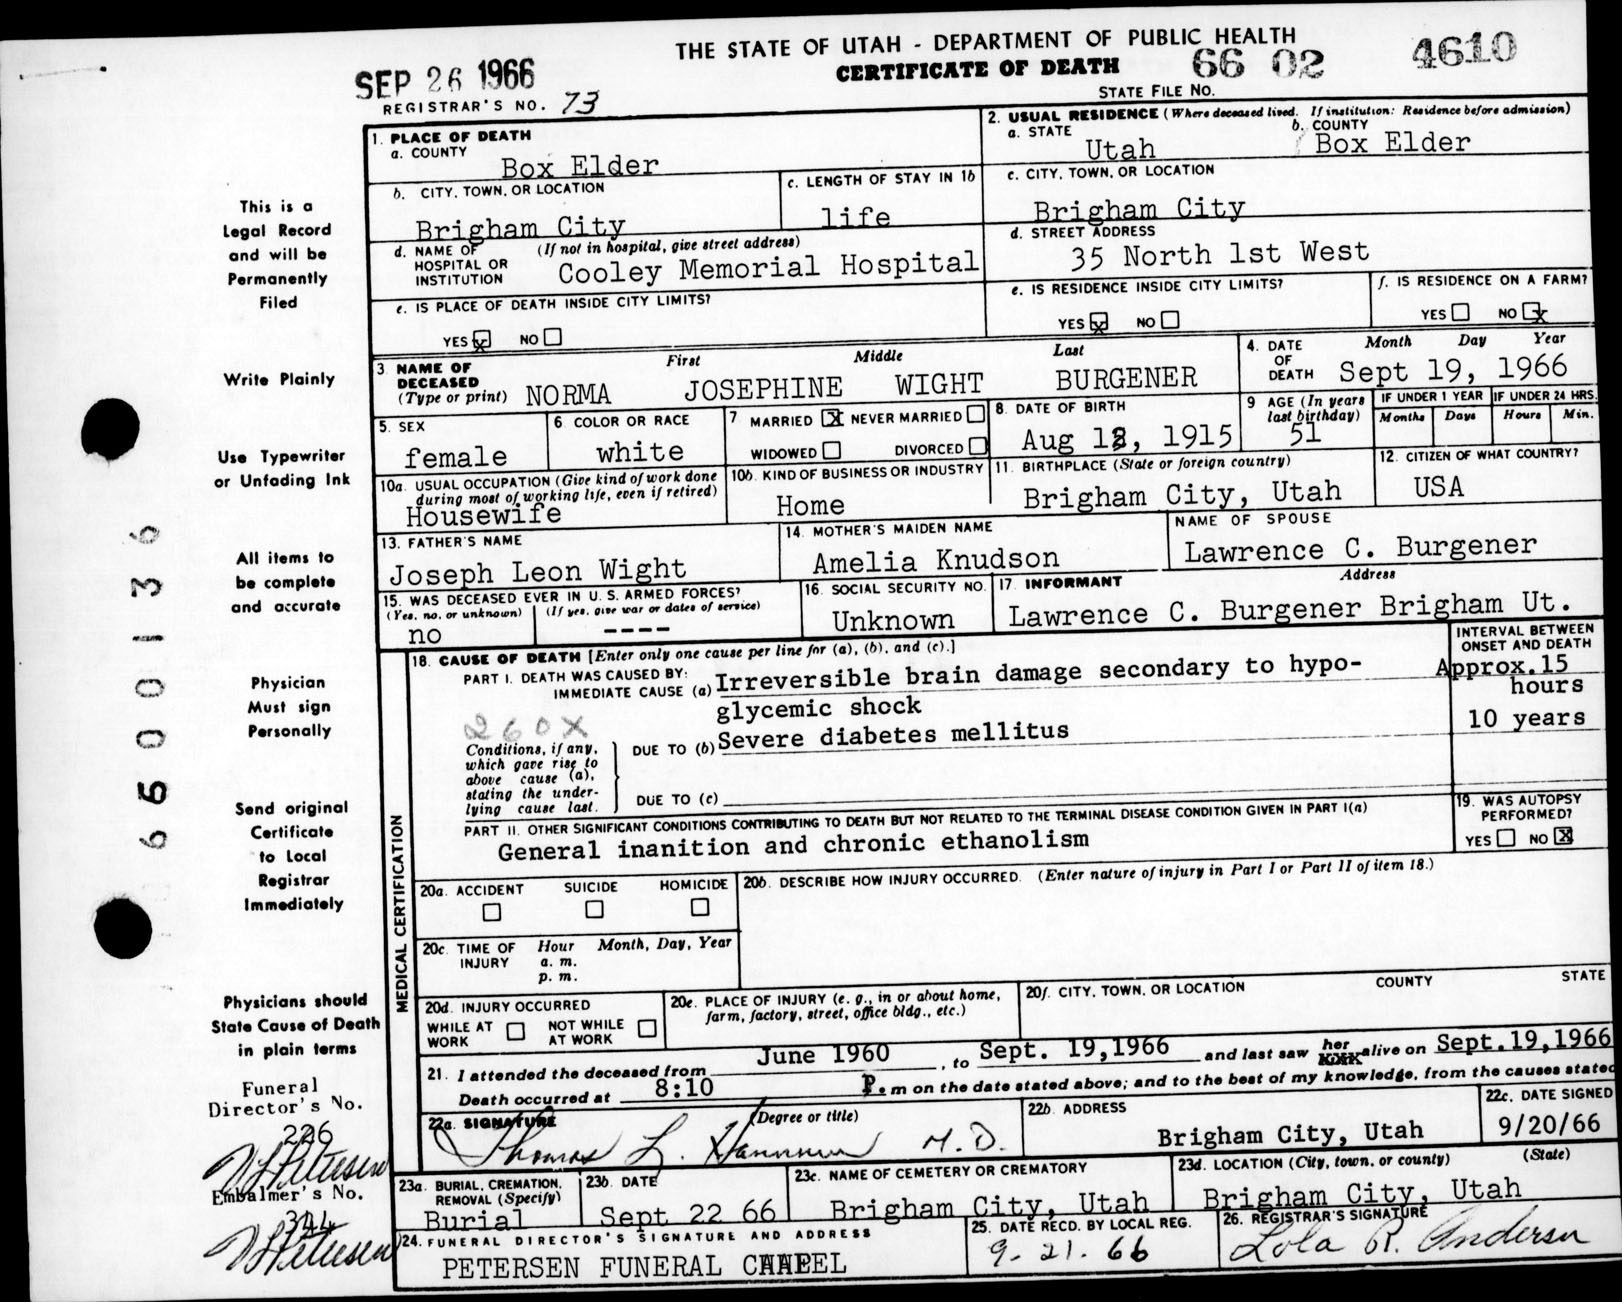 THE STATE OF UTAH - DEPARTMENT OF PUBLIC HEALTH
CERTIFICATE OF DEATH 66 02 4610
SEP 26 1966
STATE FILE No.
REGISTRAR'S NO. 73
1. PLACE OF DEATH
a. COUNTY
Box Elder
2. USUAL RESIDENCE (Where deceased lived. If institution: Residence before admission)
a. STATE b. COUNTY
Utah Box Elder
b. CITY, TOWN, OR LOCATION
Brigham City
c. LENGTH OF STAY IN 1b
life
c. CITY, TOWN, OR LOCATION
Brigham City
d. NAME OF HOSPITAL OR INSTITUTION (If not in hospital, give street address)
Cooley Memorial Hospital
d. STREET ADDRESS
35 North 1st West
e. IS PLACE OF DEATH INSIDE CITY LIMITS?
YES x NO
e. IS RESIDENCE INSIDE CITY LIMITS?
YES x NO
f. IS RESIDENCE ON A FARM?
YES NO x
3. NAME OF DECEASED (Type or print)
First Middle Last
NORMA JOSEPHINE WIGHT BURGENER
4. DATE OF DEATH
Month Day Year
Sept 19, 1966
5. SEX
female
6. COLOR OR RACE
white
7 MARRIED X NEVER MARRIED
WIDOWED DIVORCED
8. DATE OF BIRTH
Aug , 1915
9 AGE (In years last birthday)
51
IF UNDER 1 YEAR
Months Days
IF UNDER 24 HRS.
Hours Min.
10a. USUAL OCCUPATION (Give kind of work done during most of working life, even if retired)
Housewife
10b. KIND OF BUSINESS OR INDUSTRY
Home
11. BIRTHPLACE (State or foreign country)
Brigham City, Utah
12. CITIZEN OF WHAT COUNTRY?
USA
13. FATHER'S NAME
Joseph Leon Wight
14. MOTHER'S MAIDEN NAME
Amelia Knudson
NAME OF SPOUSE
Lawrence C. Burgener
15. WAS DECEASED EVER IN U.S. ARMED FORCES?
(Yes, no, or unknown) (If yes, give war or dates of service)
no ----
16. SOCIAL SECURITY NO.
Unknown
17. INFORMANT Address
Lawrence C. Burgener Brigham Ut.
18. CAUSE OF DEATH [Enter only one cause per line for (a), (b), and (c).]
INTERVAL BETWEEN ONSET AND DEATH
PART I. DEATH WAS CAUSED BY:
IMMEDIATE CAUSE (a) Irreversible brain damage secondary to hypo- Approx.15
glycemic shock hours
260X
Conditions, if any, which gave rise to above cause (a), stating the underlying cause last.
DUE TO (b) Severe diabetes mellitus 10 years
DUE TO (c)
PART II. OTHER SIGNIFICANT CONDITIONS CONTRIBUTING TO DEATH BUT NOT RELATED TO THE TERMINAL DISEASE CONDITION GIVEN IN PART I(a)
General inanition and chronic ethanolism
19. WAS AUTOPSY PERFORMED?
YES NO X
MEDICAL CERTIFICATION
20a. ACCIDENT SUICIDE HOMICIDE
20b. DESCRIBE HOW INJURY OCCURRED. (Enter nature of injury in Part I or Part II of item 18.)
20c. TIME OF INJURY
Hour Month, Day, Year
a. m.
p. m.
20d. INJURY OCCURRED
WHILE AT WORK NOT WHILE AT WORK
20e. PLACE OF INJURY (e. g., in or about home, farm, factory, street, office bldg., etc.)
20f. CITY, TOWN, OR LOCATION COUNTY STATE
21. I attended the deceased from June 1960, to Sept. 19,1966 and last saw her alive on Sept.19,1966
Death occurred at 8:10 P. m on the date stated above; and to the best of my knowledge, from the causes stated
22a. SIGNATURE (Degree or title)
Thomas L. M. D.
22b. ADDRESS
Brigham City, Utah
22c. DATE SIGNED
9/20/66
23a. BURIAL, CREMATION, REMOVAL (Specify)
Burial
23b. DATE
Sept 22 66
23c. NAME OF CEMETERY OR CREMATORY
Brigham City, Utah
23d. LOCATION (City, town, or county) (State)
Brigham City, Utah
24. FUNERAL DIRECTOR'S SIGNATURE AND ADDRESS
PETERSEN FUNERAL CHAPEL
25. DATE RECD. BY LOCAL REG.
9-21-66
26. REGISTRAR'S SIGNATURE
Lola R. Andersen
This is a
Legal Record
and will be
Permanently
Filed
Write Plainly
Use Typewriter
or Unfading Ink
All items to
be complete
and accurate
Physician
Must sign
Personally
Send original
Certificate
to Local
Registrar
Immediately
Physicians should
State Cause of Death
in plain terms
Funeral
Director's No.
226
V L Petersen
Embalmer's No.
344
V L Petersen